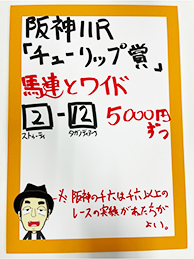 阪神11R
「チューリップ賞」
馬連とワイド
2-12 5000円
ずつ
ストゥーティ タガノディアーナ
〆 阪神の千六は千六以上の
レースの実績があった方が
よい。